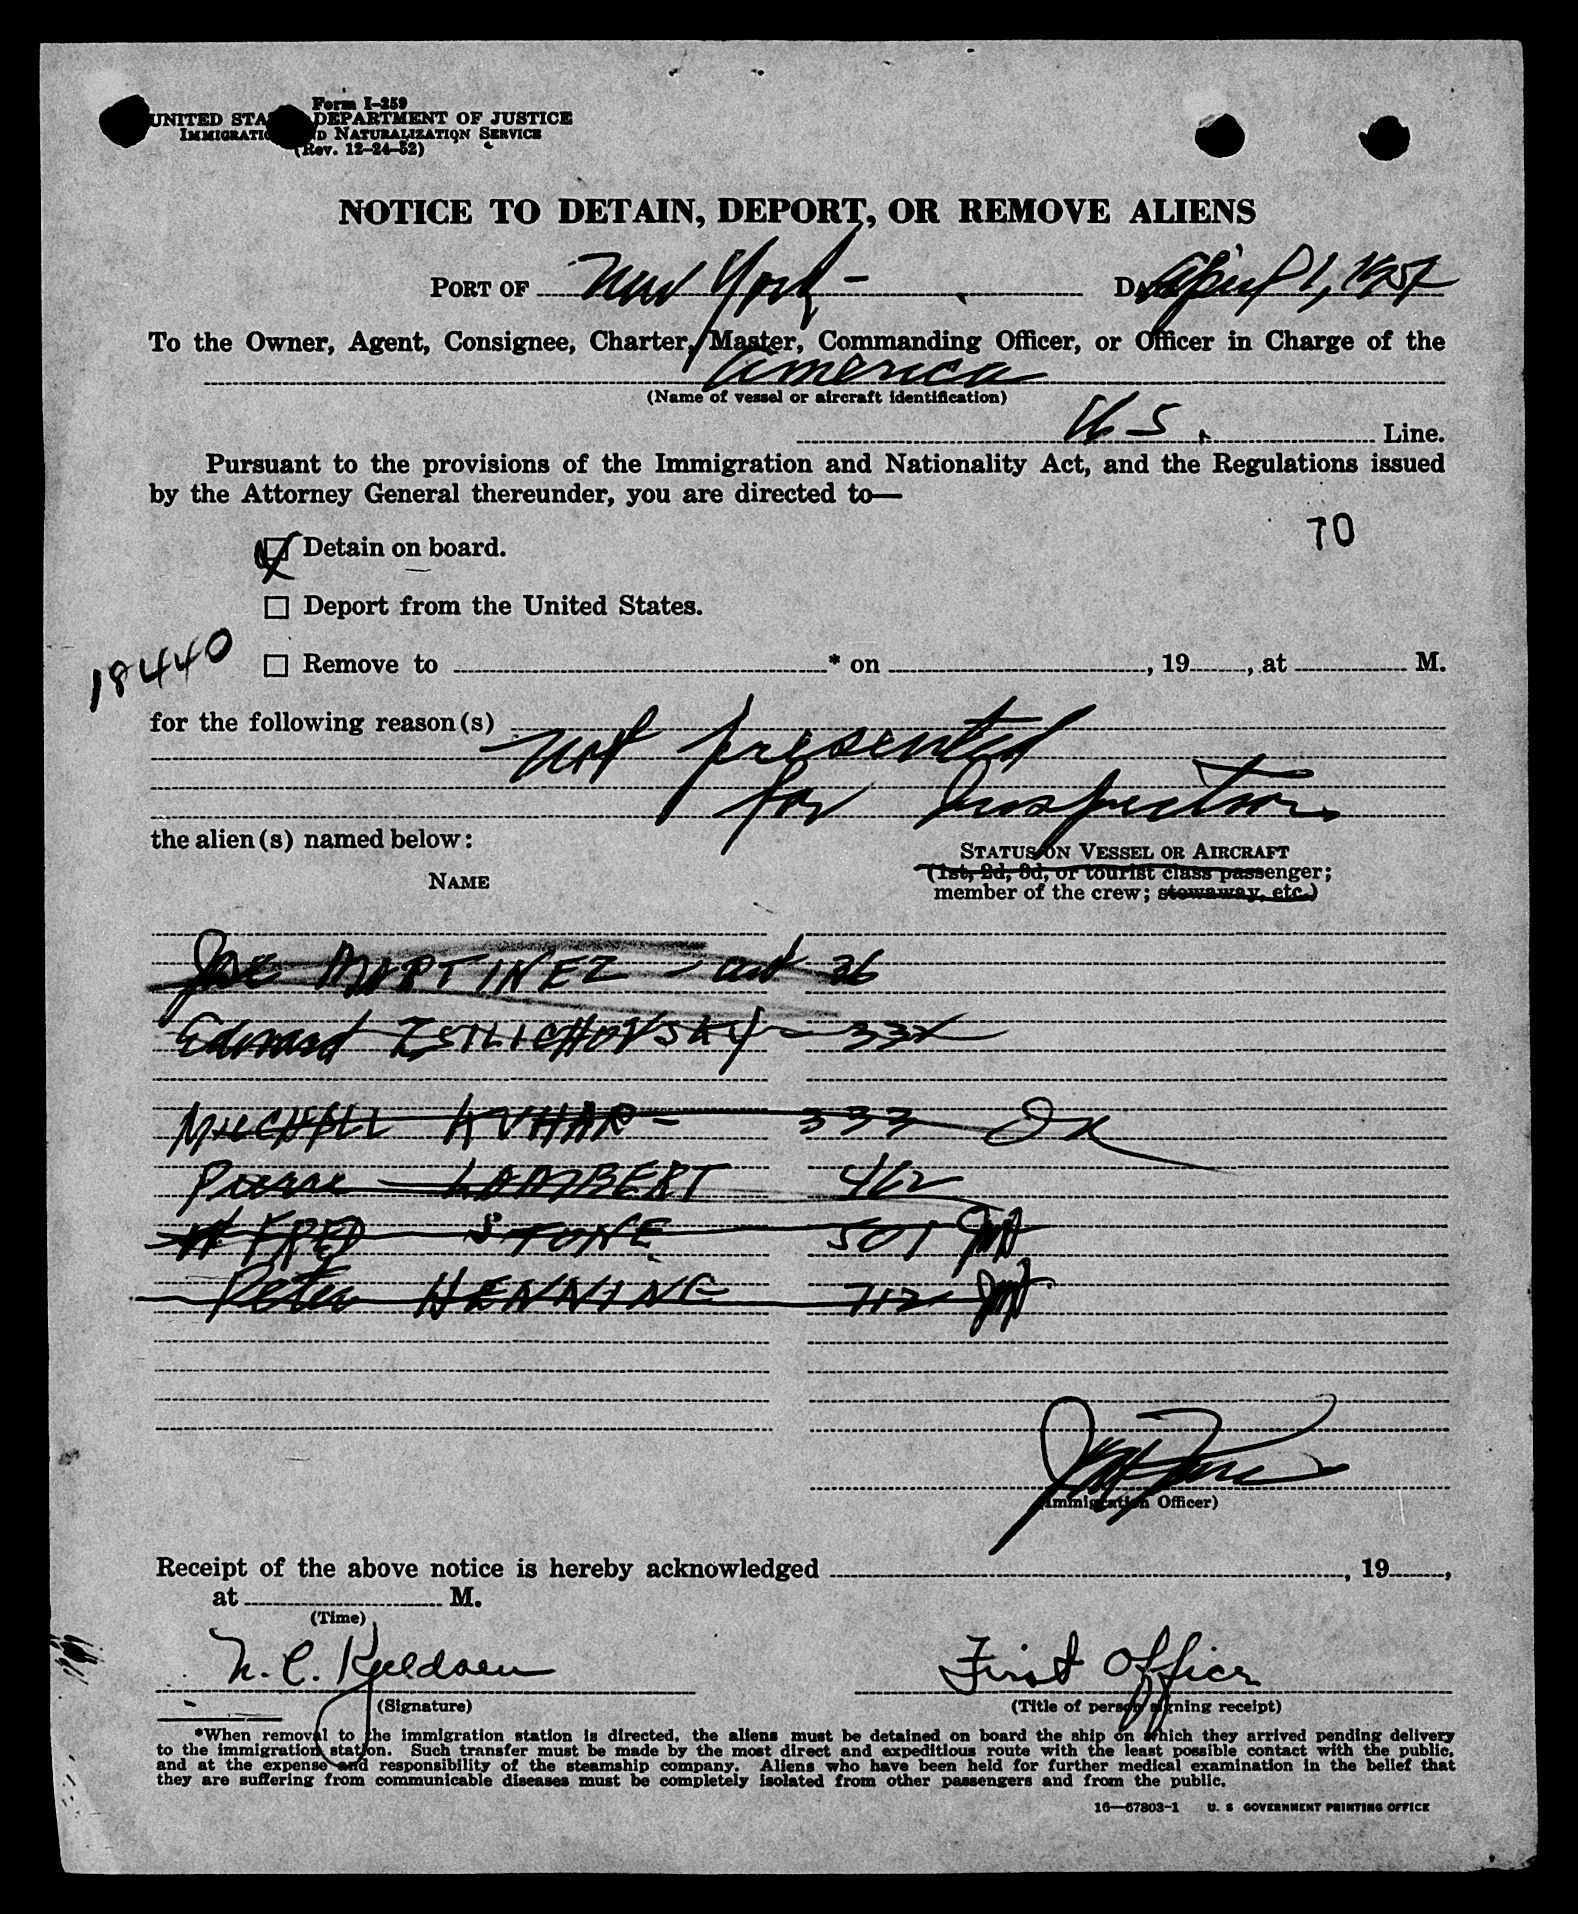 Form I-259
UNITED STA DEPARTMENT OF JUSTICE
IMMIGRATIO ND NATURALIZATION SERVICE
(Rev. 12-24-52)
NOTICE TO DETAIN, DEPORT, OR REMOVE ALIENS
PORT OF New York - April 1, 1957
To the Owner, Agent, Consignee, Charter, Master, Commanding Officer, or Officer in Charge of the
America
(Name of vessel or aircraft identification)
U S. Line.
Pursuant to the provisions of the Immigration and Nationality Act, and the Regulations issued
by the Attorney General thereunder, you are directed to—
70
Detain on board.
Deport from the United States.
18440
Remove to * on , 19 , at M.
for the following reason(s)
not presented
for Inspection.
the alien(s) named below:
NAME
STATUS ON VESSEL OR AIRCRAFT
(1st, 2d, 3d, or tourist class passenger;
member of the crew; stowaway, etc.)
Jose MARTINEZ - art 26
Edward 332
KUHAR - 333 OK
Pierre LAMBERT 462
FRED STONE 501
Peter HENNING 712
(Immigration Officer)
Receipt of the above notice is hereby acknowledged , 19 ,
at M.
(Time)
N. C. Kjeldsen First Officer
(Signature) (Title of person signing receipt)
*When removal to the immigration station is directed, the aliens must be detained on board the ship on which they arrived pending delivery
to the immigration station. Such transfer must be made by the most direct and expeditious route with the least possible contact with the public,
and at the expense and responsibility of the steamship company. Aliens who have been held for further medical examination in the belief that
they are suffering from communicable diseases must be completely isolated from other passengers and from the public.
16—67803-1 U. S GOVERNMENT PRINTING OFFICE